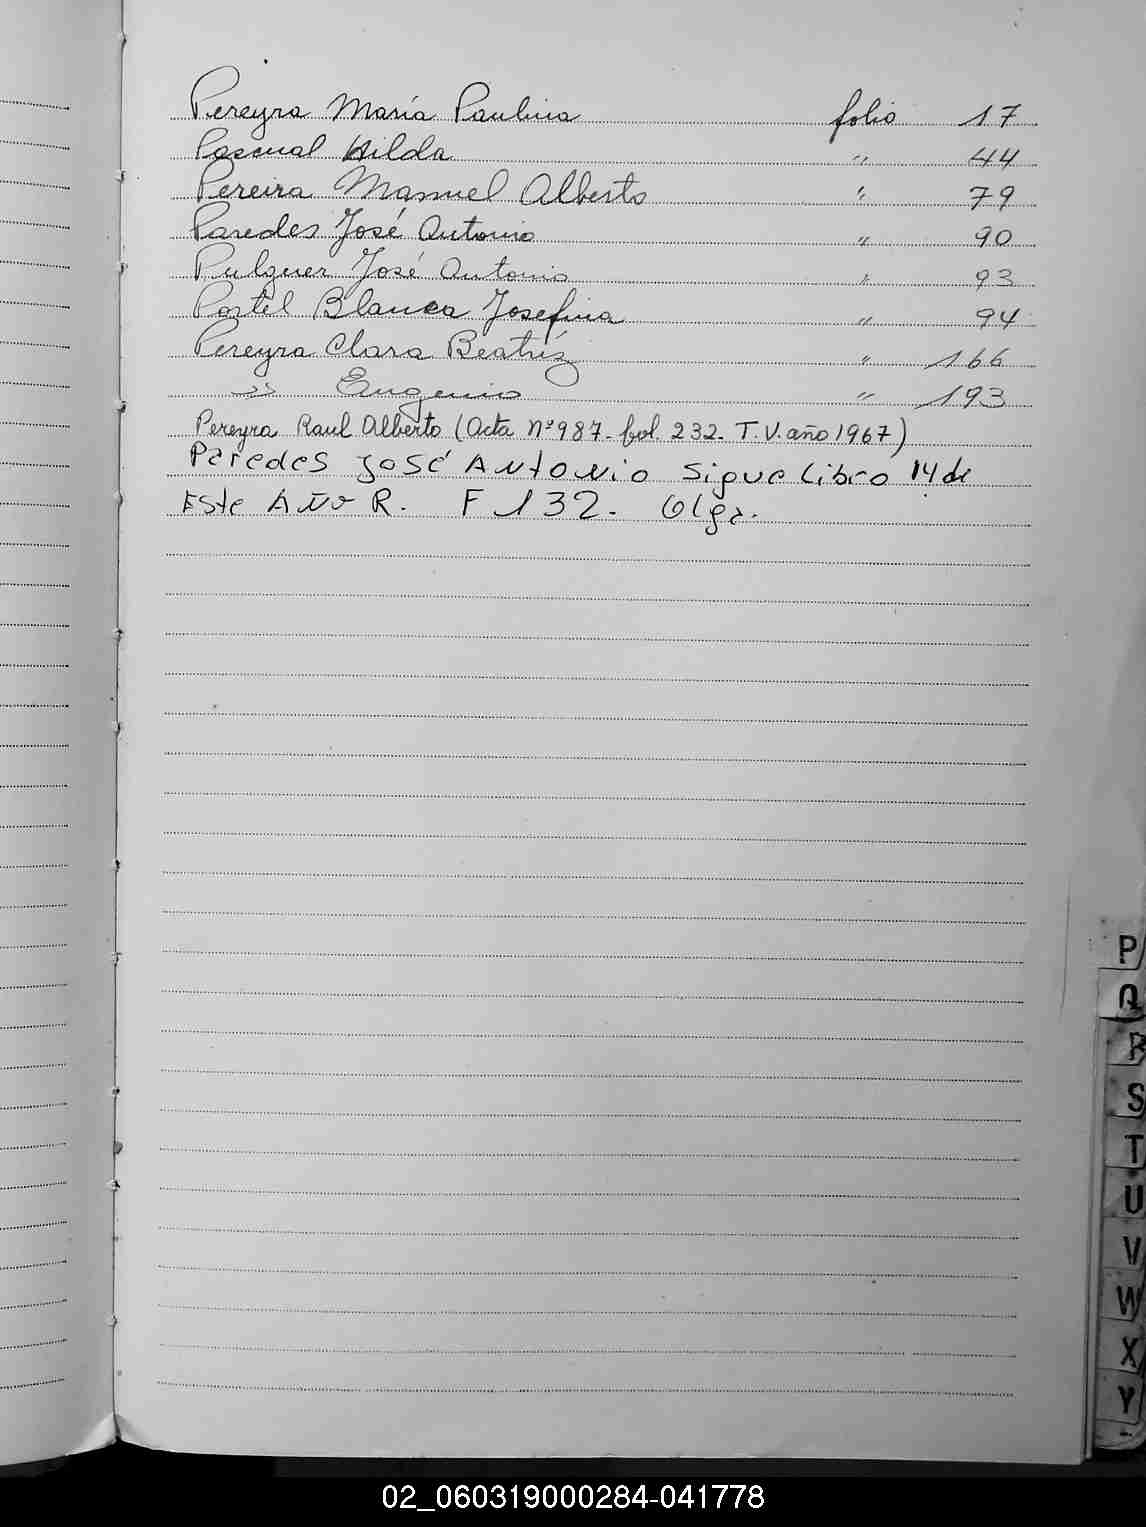 Pereyra María Paulina folio 17
Pascual Hilda " 44
Pereira Manuel Alberto " 79
Paredes José Antonio " 90
Pulguer José Antonio " 93
Postel Blanca Josefina " 94
Pereyra Clara Beatríz " 166
" Eugenio " 193
Pereyra Raul Alberto (Acta nº 987. fol. 232. T.V. año 1967)
Paredes José Antonio Sigue Libro 14 de
Este Año R. F 132. Olga.
P
Q
R
S
T
U
V
W
X
Y
02_060319000284-041778